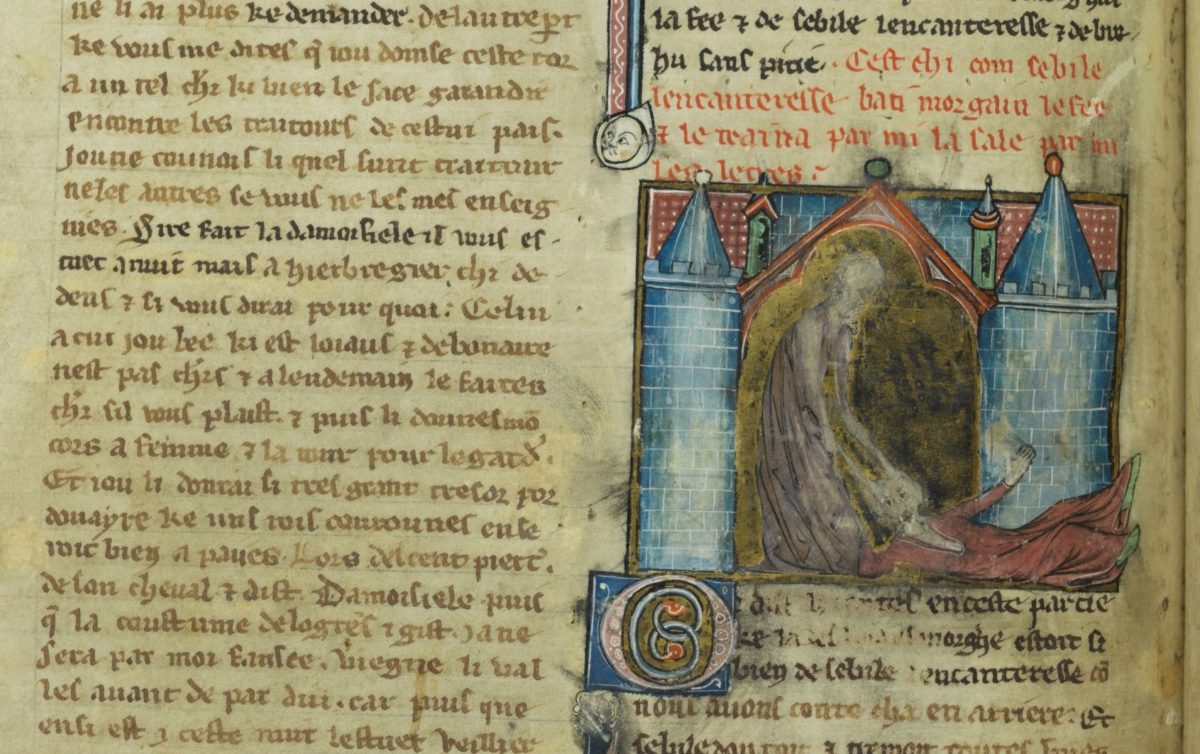 ne li ai plus ke demander. de lautre part
ke vous me dites q̃ iou doinse ceste tor
a un tel chr̃ ki bien le sace garandir
encontre les traitours de cestui pais.
Jou ne counois li quel sunt traitour
ne les autres se vous ne les mes enseig
nies. Sire fait la damoisiele il vous es-
tuet anuit mais a hierbregier chr̃ de-
dens ⁊ si vous dirai pour quoi. Celui
a cui jou bee ki est loiaus ⁊ debonaire
nest pas chr̃s ⁊ a lendemain le faites
chr̃ sil vous plaist. ⁊ puis li donnes mõ
cors a femme ⁊ la tour pour le gard̾.
Et iou li donrai si tres grant tresor por
douayre ke uns rois courounes en se
roit bien a payes. Lors descent piert̾.
de son cheval ⁊ dist. Damoisiele puis
q̃ la coustume de logres i gist. Ja ne
sera par moi fausee. Viegne li val
les avant de par diu. car puis que
ensi est ⁊ ceste nuit lestuet veillier
la fee ⁊ de sebile lencanteresse ⁊ de bre-
hu sans pitie. Cest chi com sebile
lencanteresse bati morgain le fee
⁊ le traina par mi la sale par mi
les
Or dist li contes en ceste partie
ke morghe estoit si
bien de sebile lencanteresse cõ
nous avons conte cha en arriere. Et
sebile